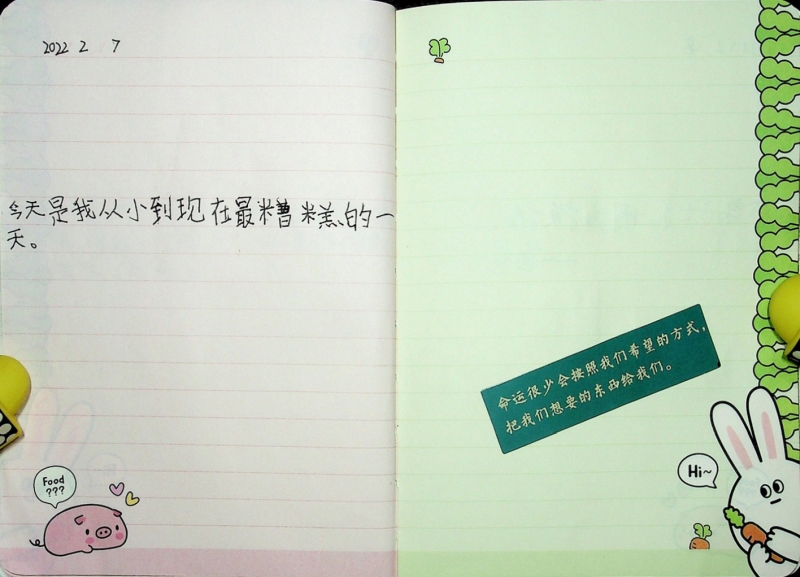 2022 2 7
今天是我从小到现在最糟糕的一
天。
Food
???
命运很少会按照我们希望的方式，
把我们想要的东西给我们。
Hi~